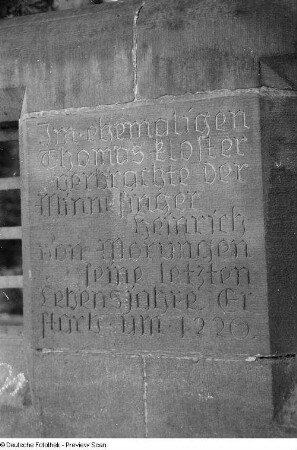 Im ehemaligen
Thomaskloster
verbrachte der
Minnesinger
Heinrich
von Morungen
seine letzten
Lebensjahre Er
starb um 1220
© Deutsche Fotothek - Preview Scan